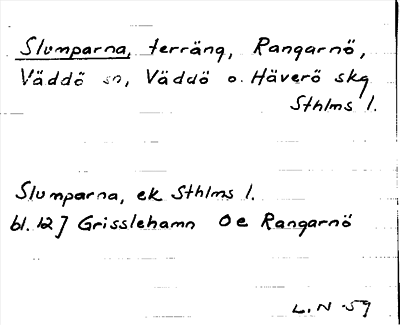 Slumparna, terräng, Rangarnö,
Väddö sn, Väddö o. Häverö skg
Sthlms l.
Slumparna, ek Sthlms l.
bl. 127 Grisslehamn Oe Rangarnö
L. N -59